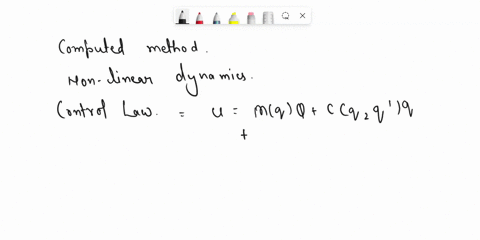 Computed method.
Non-linear dynamics.
Control Law. = u = m(q)Q + C(q, q')q
+